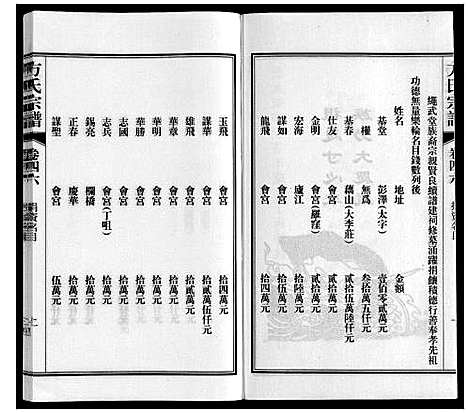 繩武堂族裔宗親賢良續譜建祠修墓涌躍捐饋積德行善奉孝先祖
功德無量樂輸名目錢數列後
姓名 地址 金額
基堂 彭澤(太字) 壹佰零貳萬元
權 無爲 叁拾萬五仟元
基春 藕山(大李莊) 貳拾五萬陸仟元
仕友 會宮 貳拾萬元
金明 會宮(羅窕) 貳拾萬元
宏海 廬江 拾陸萬元
謀如 會宮 拾五萬元
龍飛 會宮 拾四萬元
方氏宗譜
卷四六
玉飛 會宮 拾四萬元
謀華 會宮 拾貳萬伍仟元
雄飛 會宮 拾貳萬元
華章 會宮 拾萬元
華明 會宮 拾萬元
華勝 會宮 拾萬元
志國 會宮 拾萬元
志兵 會宮(丁咀) 拾萬元
錫亮 欄橋 拾萬元
正春 慶華 陸萬元
謀聖 會宮 伍萬元
方氏宗譜
卷四六